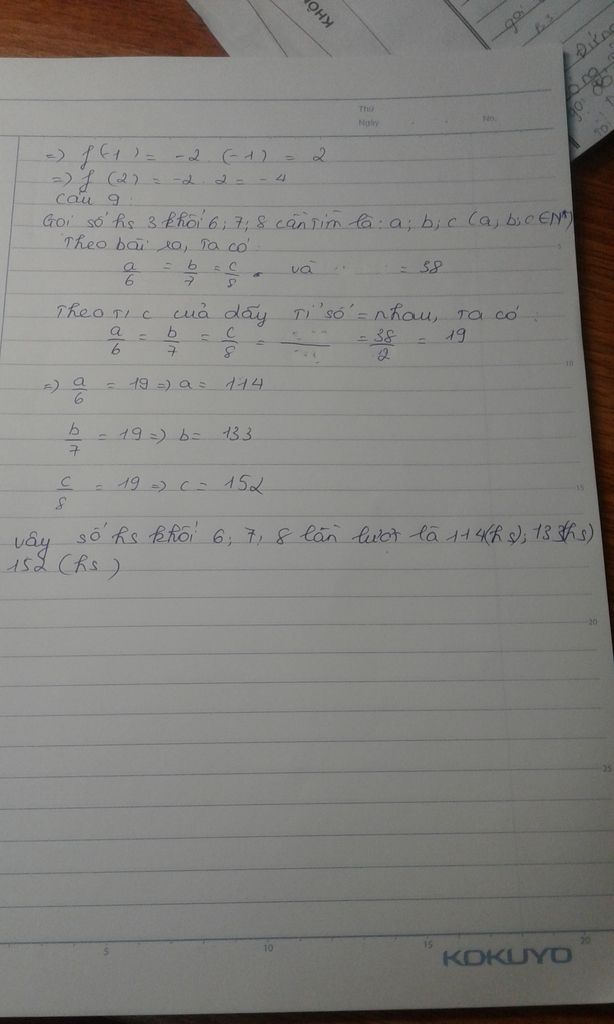 KHÔN
Thứ
Ngày
No.
=) f(-1) = -2 (-1) = 2
=) f (2) = -2 . 2 = -4
Câu 9:
Gọi số hs 3 khối 6, 7, 8 cần tìm là: a; b; c (a, b, c ∈ N*)
Theo bài ra, ta có:
a/6 = b/7 = c/8 . và = 38
Theo T/c của dãy Tỉ số = nhau, Ta có:
a/6 = b/7 = c/8 = = 38/2 = 19
=) a/6 = 19 =) a = 114
b/7 = 19 =) b = 133
c/8 = 19 =) c = 152
Vậy số hs khối 6, 7, 8 lần lượt là 114(hs); 133(hs)
152 (hs)
5
10
15
20
25
5
10
15
20
KOKUYO